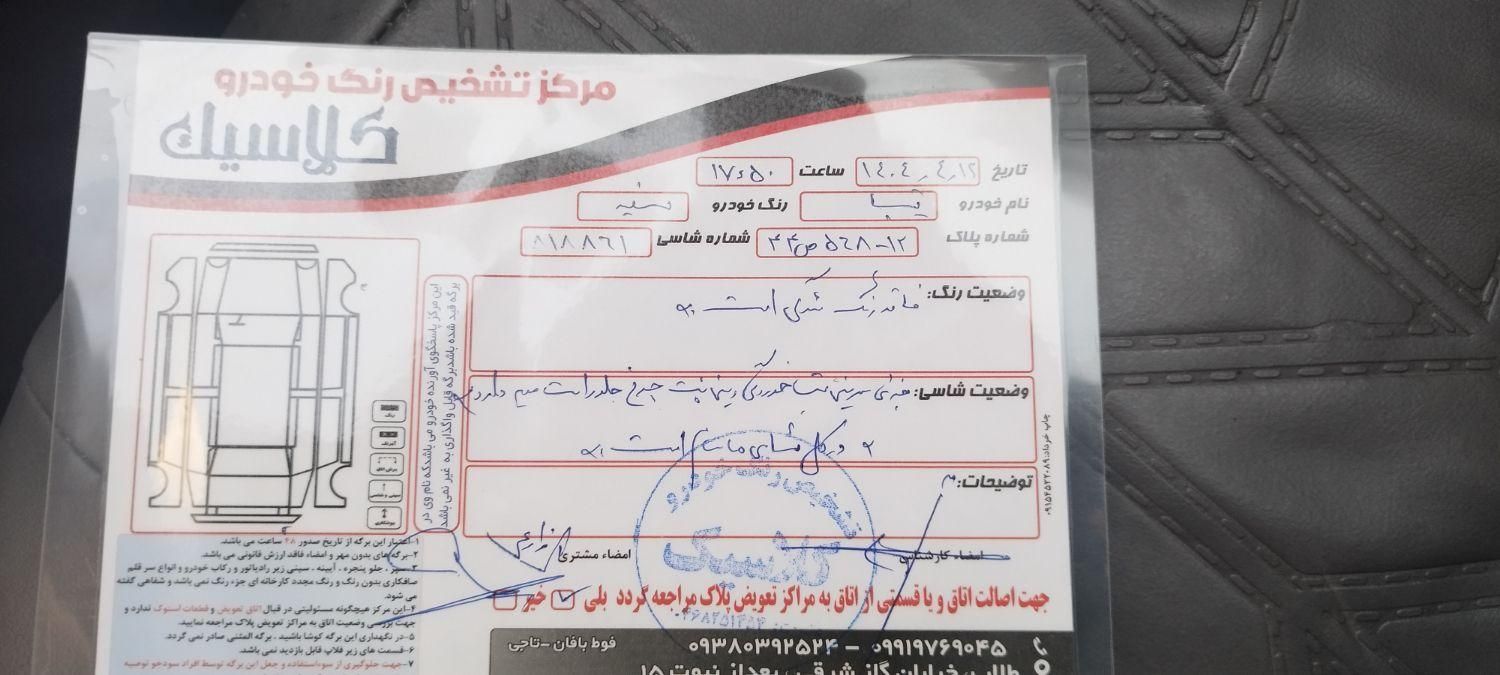 مرکز تشخیص رنگ خودرو
کلاسیك
تاریخ ۱۴۰۴٫۴٫۱۲ ساعت ۱۷:۵۰
نام خودرو تیبا رنگ خودرو سفید
شماره پلاک ۱۲-۵۶۸ص۴۴ شماره شاسی ۸۱۸۸۶۱
وضعیت رنگ: فاقد رنگ شدگی است
وضعیت شاسی:
و در کل شاسی ها سالم است
توضیحات:
این مرکز پاسخگوی آورنده خودرو می باشدکه نام وی در
برگه قید شده باشدبرگه قابل واگذاری به غیر نمی باشد
رنگ
آبرنگ
برش اتاق
سینی و شاسی
چاپ خرداد:۰۹۱۵۴۵۲۲۰۸۹
امضاء کارشناس
امضاء مشتری
تشخیص رنگ خودرو
کلاسیک
جهت اصالت اتاق و یا قسمتی از اتاق به مراکز تعویض پلاک مراجعه گردد بلی خیر
۱-اعتبار این برگه از تاریخ صدور ۴۸ ساعت می باشد.
۲-برگه های بدون مهر و امضاء فاقد ارزش قانونی می باشد.
۳-سپر، جلو پنجره، آیینه، سینی زیر رادیاتور و رکاب خودرو و انواع سر قلم
صافکاری بدون رنگ و رنگ مجدد کارخانه ای جزء رنگ نمی باشد و شفاهی گفته
می شود.
۴-این مرکز هیچگونه مسئولیتی در قبال اتاق تعویض و قطعات استوک ندارد و
جهت بررسی وضعیت اتاق به مراکز تعویض پلاک مراجعه نمایید.
۵-در نگهداری این برگه کوشا باشید. برگه المثنی صادر نمی گردد.
۶-قسمت های زیر فلاپ قابل بازدید نمی باشد.
۷-جهت جلوگیری از سوءاستفاده و جعل این برگه توسط افراد سودجو توصیه
۰۹۹۱۹۷۶۹۰۴۵ - ۰۹۳۸۰۳۹۲۵۲۴ فوط بافان-تاجی
طلاب، خیابان گاز شرقی، بعد از نبوت ۱۵